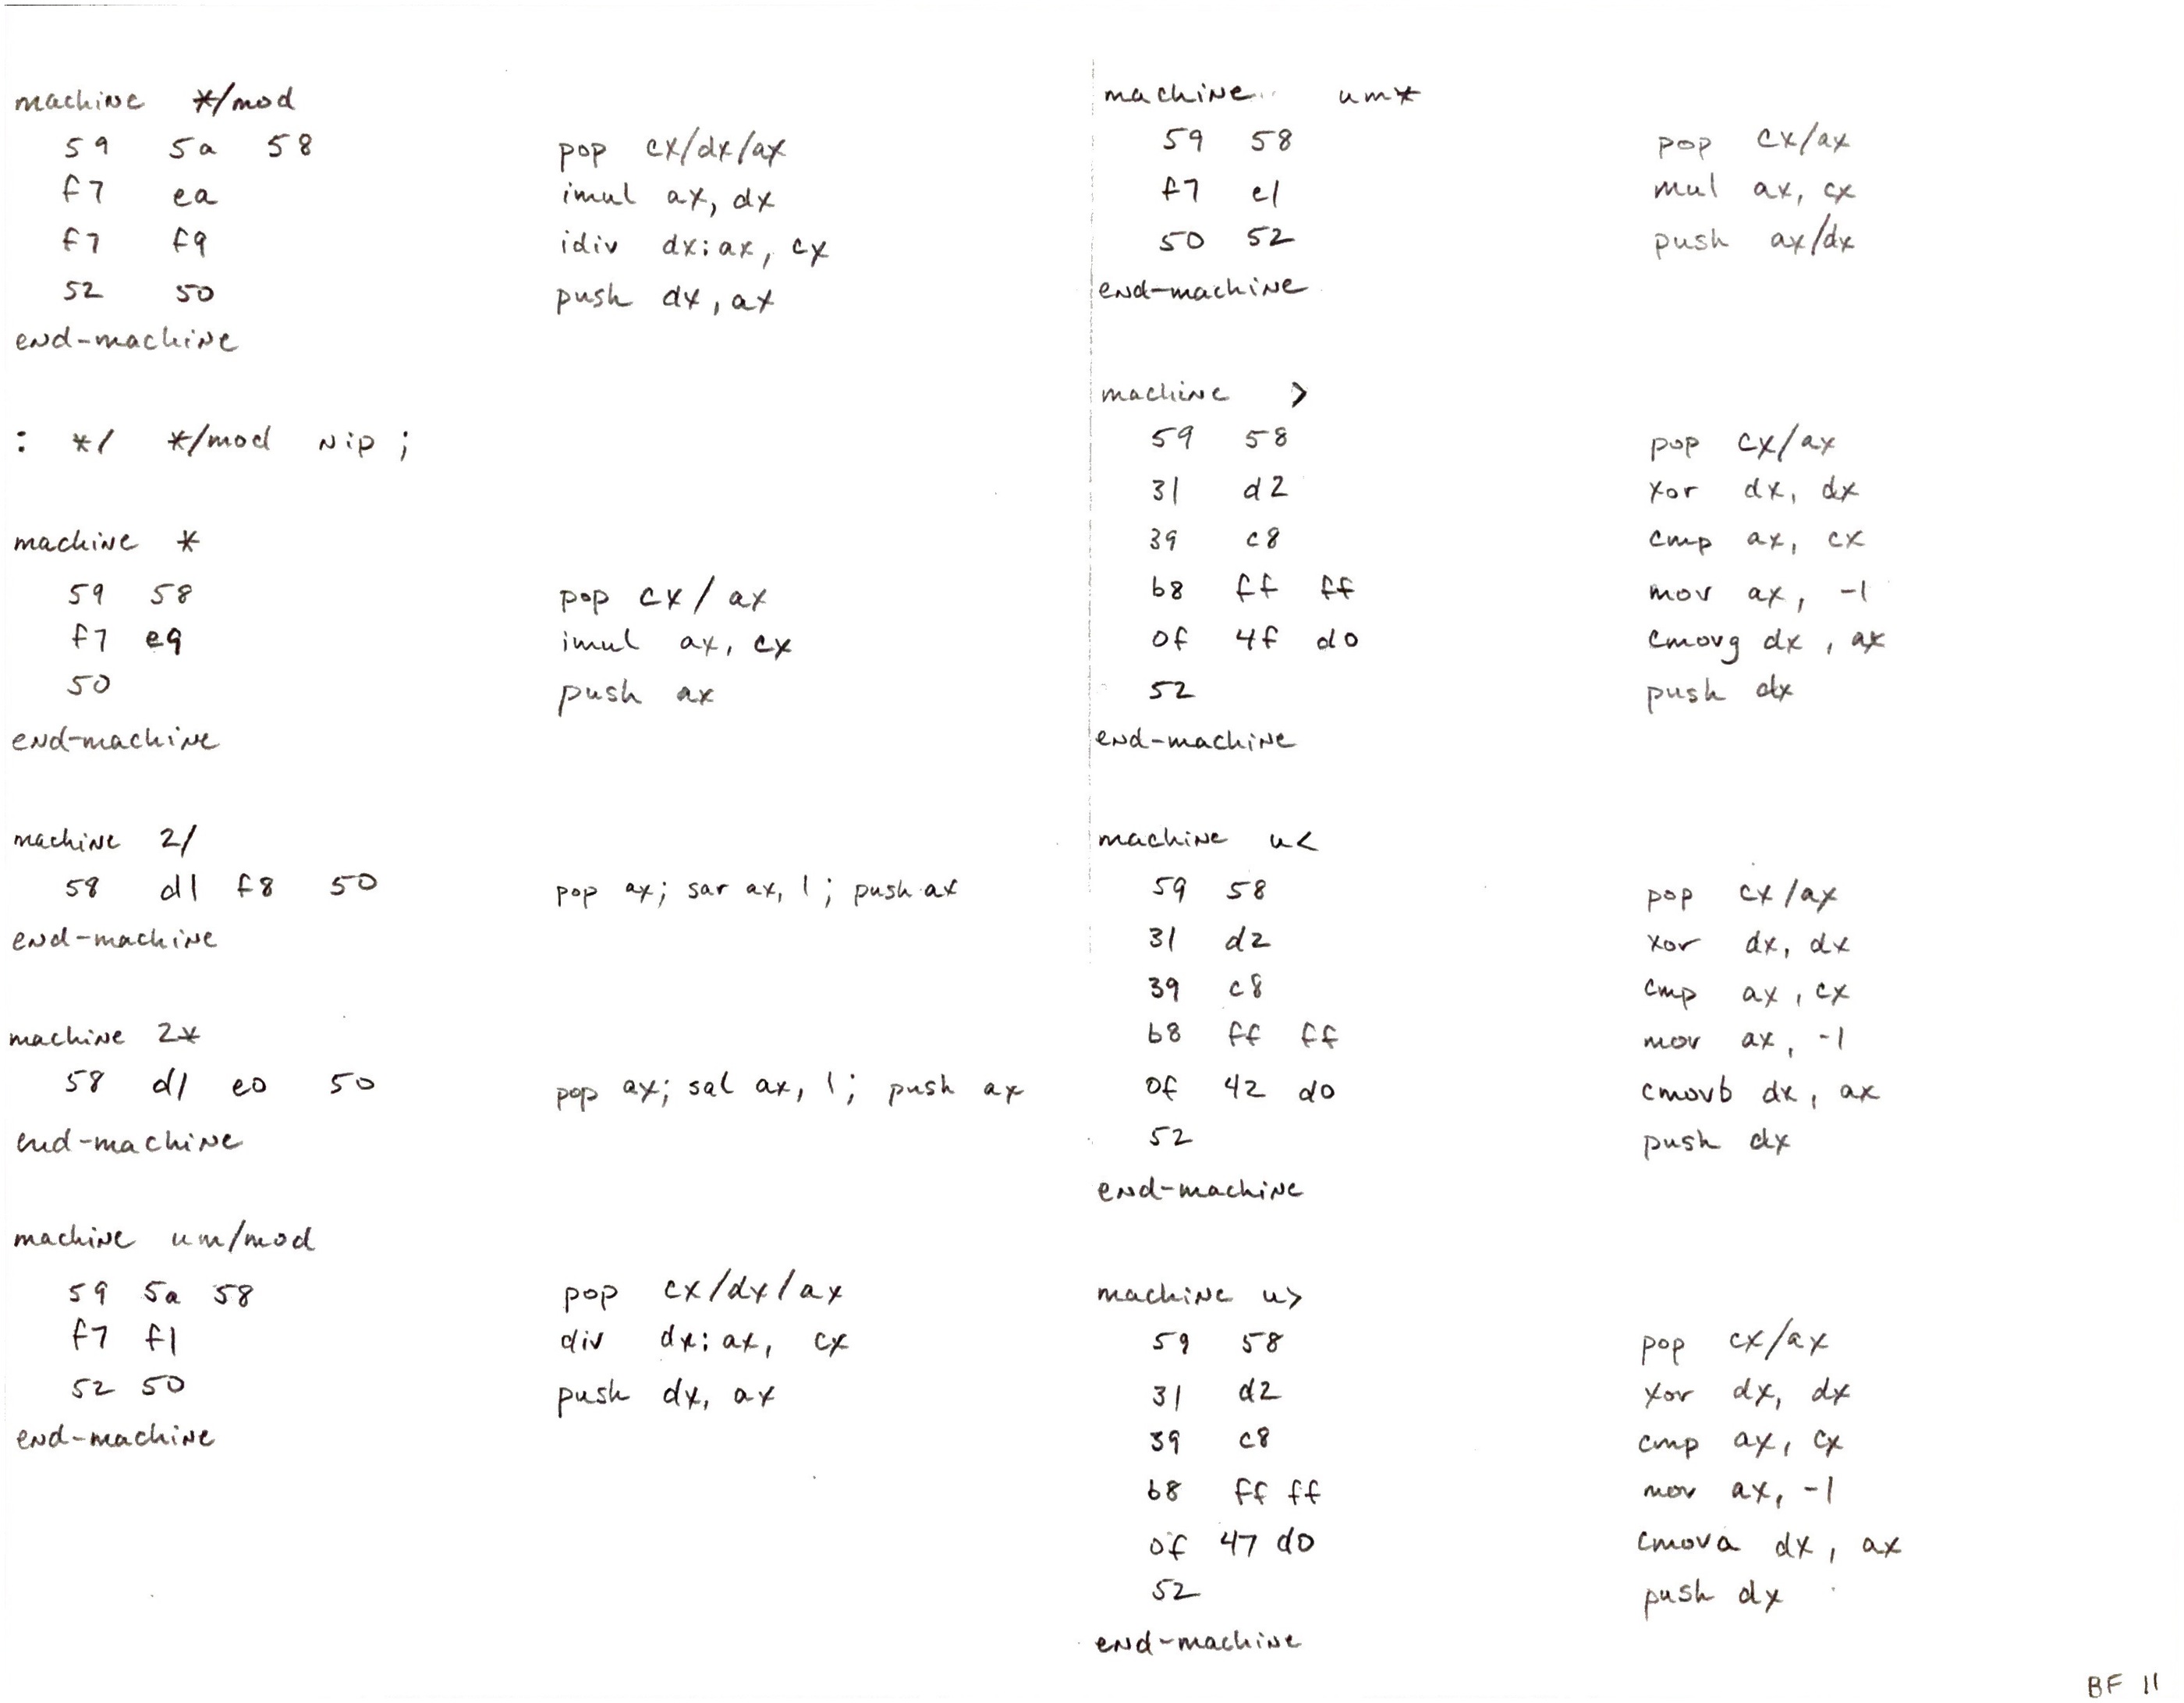 machine */mod
59 5a 58 pop cx/dx/ax
f7 ea imul ax, dx
f7 f9 idiv dx:ax, cx
52 50 push dx, ax
end-machine
: */ */mod nip ;
machine *
59 58 pop cx / ax
f7 e9 imul ax, cx
50 push ax
end-machine
machine 2/
58 d1 f8 50 pop ax; sar ax, 1; push ax
end-machine
machine 2*
58 d1 e0 50 pop ax; sal ax, 1; push ax
end-machine
machine um/mod
59 5a 58 pop cx/dx/ax
f7 f1 div dx:ax, cx
52 50 push dx, ax
end-machine
machine um*
59 58 pop cx/ax
f7 e1 mul ax, cx
50 52 push ax/dx
end-machine
machine >
59 58 pop cx/ax
31 d2 xor dx, dx
39 c8 cmp ax, cx
b8 ff ff mov ax, -1
0f 4f d0 cmovg dx, ax
52 push dx
end-machine
machine u<
59 58 pop cx/ax
31 d2 xor dx, dx
39 c8 cmp ax, cx
b8 ff ff mov ax, -1
0f 42 d0 cmovb dx, ax
52 push dx
end-machine
machine u>
59 58 pop cx/ax
31 d2 xor dx, dx
39 c8 cmp ax, cx
b8 ff ff mov ax, -1
0f 47 d0 cmova dx, ax
52 push dx
end-machine
BF 11